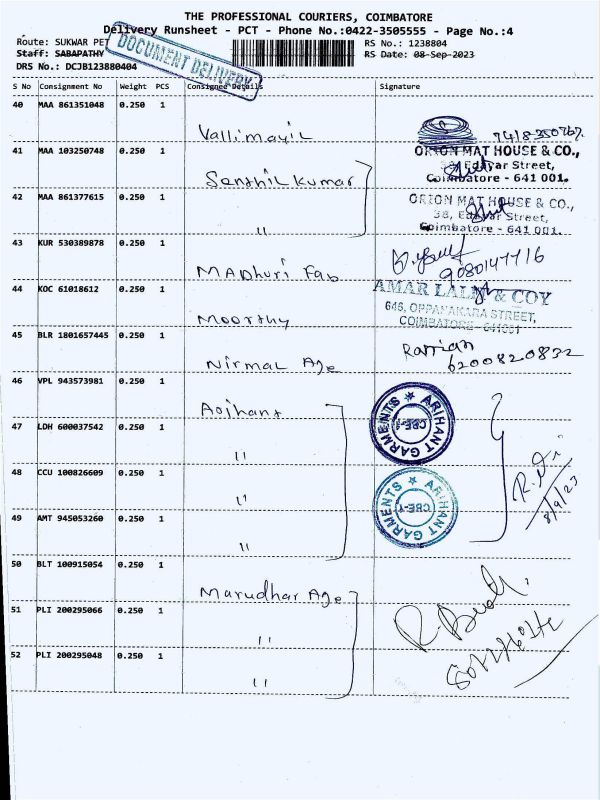 THE PROFESSIONAL COURIERS, COIMBATORE
Delivery Runsheet - PCT - Phone No.:0422-3505555 - Page No.:4
Route: SUKWAR PET
RS No.: 1238804
Staff: SABAPATHY
RS Date: 08-Sep-2023
DRS No.: DCJB123880404
DOCUMENT DELIVERY
S No Consignment No Weight PCS Consignee Details Signature
40 MAA 861351048 0.250 1
Vallimayil
41 MAA 103250748 0.250 1
ORION MAT HOUSE & CO.,
38, Edayar Street,
Coimbatore - 641 001.
Senthil Kumar
42 MAA 861377615 0.250 1
ORION MAT HOUSE & CO.,
38, Edayar Street,
Coimbatore - 641 001.
"
43 KUR 530389878 0.250 1
Madhuri Fab
9080147716
44 KOC 61018612 0.250 1
AMAR LALL & COY
646, OPPANAKARA STREET,
COIMBATORE - 641001
Moorthy
45 BLR 1801657445 0.250 1
Nirmal Age
6200820832
46 VPL 943573981 0.250 1
Arihant
ARIHANT GARMENTS
CBE-1
47 LDH 600037542 0.250 1
"
48 CCU 100826609 0.250 1
"
ARIHANT GARMENTS
CBE-1
8/9/23
49 AMT 945053260 0.250 1
"
50 BLT 100915054 0.250 1
Marudhar Age
51 PLI 200295066 0.250 1
"
52 PLI 200295048 0.250 1
"